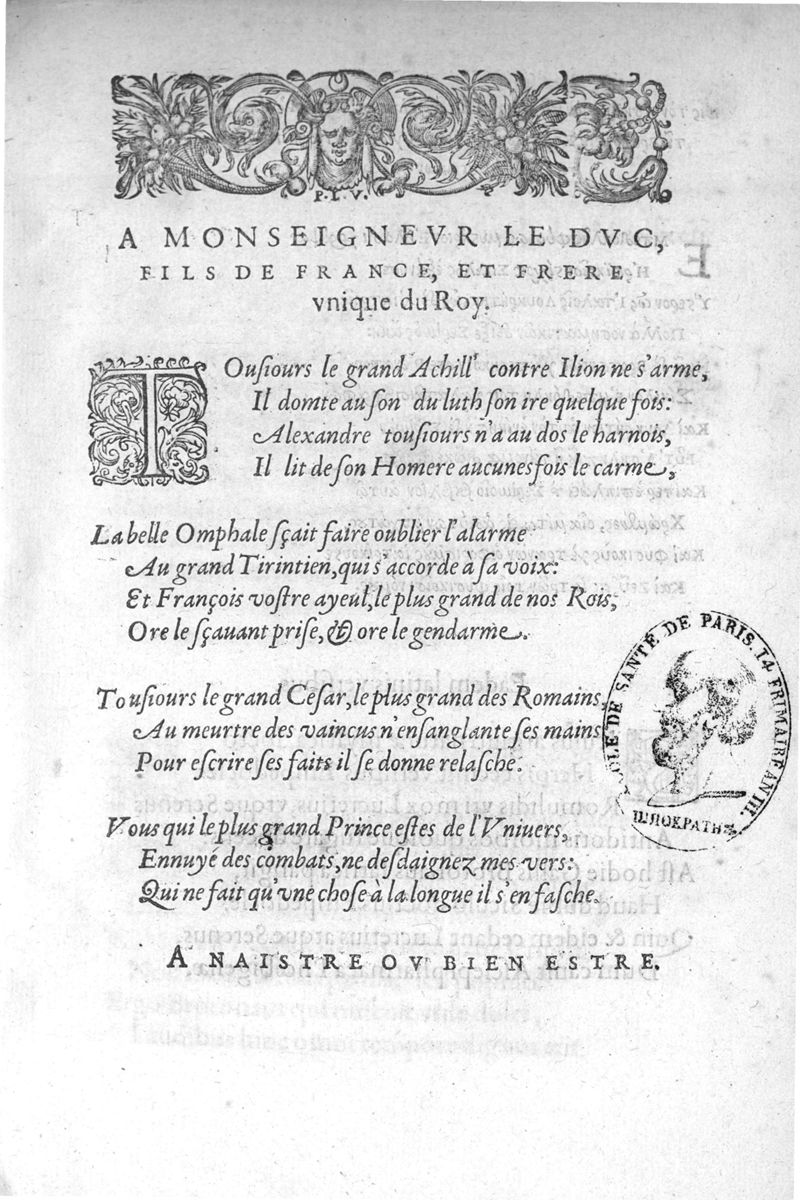 P. I. V.
A MONSEIGNEVR LE DVC,
FILS DE FRANCE, ET FRERE
vnique du Roy.
TOuſiours le grand Achill' contre Ilion ne s'arme,
Il domte au ſon du luth ſon ire quelque fois:
Alexandre touſiours n'a au dos le harnois,
Il lit de ſon Homere aucunesfois le carme,
La belle Omphale ſçait faire oublier l'alarme
Au grand Tirintien, qui s'accorde à ſa voix:
Et François voſtre ayeul, le plus grand de nos Rois,
Ore le ſçauant priſe, & ore le gendarme.
Touſiours le grand Ceſar, le plus grand des Romains,
Au meurtre des vaincus n'enſanglante ſes mains
Pour eſcrire ſes faits il ſe donne relaſche.
Vous qui le plus grand Prince eſtes de l'Vniuers,
Ennuyé des combats, ne deſdaignez mes vers:
Qui ne fait qu'vne choſe à la longue il s'en faſche.
A NAISTRE OV BIEN ESTRE.
DE SANTÉ DE PARIS. 14 FRIMAIRE AN III.
ΙΠΠΟΚΡΑΤΗΣ